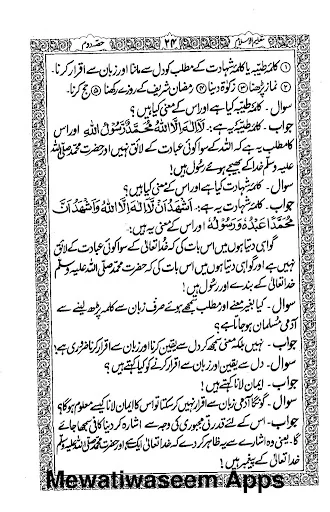 تعلیم الاسلام ۲۴ حصہ دوم
① کلمۂ طیبہ یا کلمۂ شہادت کے مطلب کو دل سے ماننا اور زبان سے اقرار کرنا۔
② نماز پڑھنا ③ زکوٰۃ دینا ④ رمضان شریف کے روزے رکھنا ⑤ حج کرنا۔
سوال۔ کلمۂ طیبہ کیا ہے اور اس کے معنی کیا ہیں؟
جواب۔ کلمۂ طیبہ یہ ہے: لَا اِلٰہَ اِلَّا اللّٰہُ مُحَمَّدٌ رَّسُوْلُ اللّٰہِ اور اس
کا مطلب یہ ہے کہ اللہ کے سوا کوئی عبادت کے لائق نہیں اور حضرت محمد صلی اللہ
علیہ وسلم خدا کے بھیجے ہوئے رسول ہیں!
سوال۔ کلمۂ شہادت کیا ہے اور اس کے معنی کیا ہیں؟
جواب۔ کلمۂ شہادت یہ ہے: اَشْہَدُ اَنْ لَّا اِلٰہَ اِلَّا اللّٰہُ وَاَشْہَدُ اَنَّ
مُحَمَّدًا عَبْدُہٗ وَرَسُوْلُہٗ اور اس کے معنی یہ ہیں:
گواہی دیتا ہوں میں اس بات کی کہ خدا تعالیٰ کے سوا کوئی عبادت کے لائق
نہیں ہے اور گواہی دیتا ہوں میں اس بات کی کہ حضرت محمد صلی اللہ علیہ وسلم
خدا تعالیٰ کے بندے اور رسول ہیں!
سوال۔ کیا بغیر معنے اور مطلب سمجھے ہوئے صرف زبان سے کلمہ پڑھ لینے سے
آدمی مسلمان ہو جاتا ہے؟
جواب۔ نہیں بلکہ معنی سمجھ کر دل سے یقین کرنا اور زبان سے اقرار کرنا ضروری ہے!
سوال۔ دل سے یقین اور زبان سے اقرار کرنے کو کیا کہتے ہیں؟
جواب۔ ایمان لانا کہتے ہیں!
سوال۔ گونگا آدمی زبان سے اقرار نہیں کر سکتا تو اس کا ایمان لانا کیسے معلوم ہوگا؟
جواب۔ اس کے لئے قدرتی مجبوری کی وجہ سے اشارہ کر دینا کافی سمجھا جائے
گا۔ یعنی وہ اشارے سے یہ ظاہر کر دے کہ خدا تعالیٰ ایک ہے اور حضرت محمد صلی اللہ علیہ وسلم
خدا تعالیٰ کے پیغمبر ہیں!
Mewatiwaseem Apps